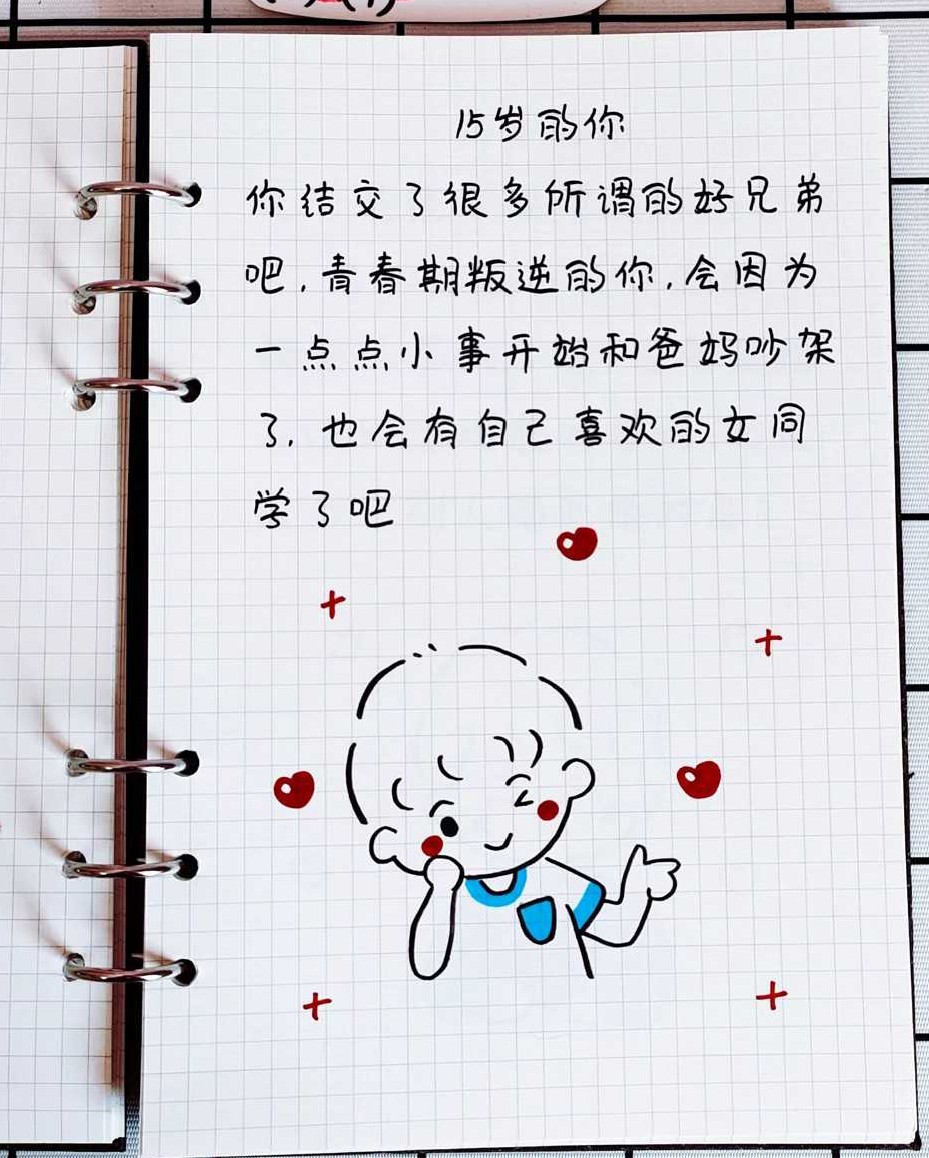 15岁的你
你结交了很多所谓的好兄弟
吧,青春期叛逆的你,会因为
一点点小事开始和爸妈吵架
了,也会有自己喜欢的女同
学了吧